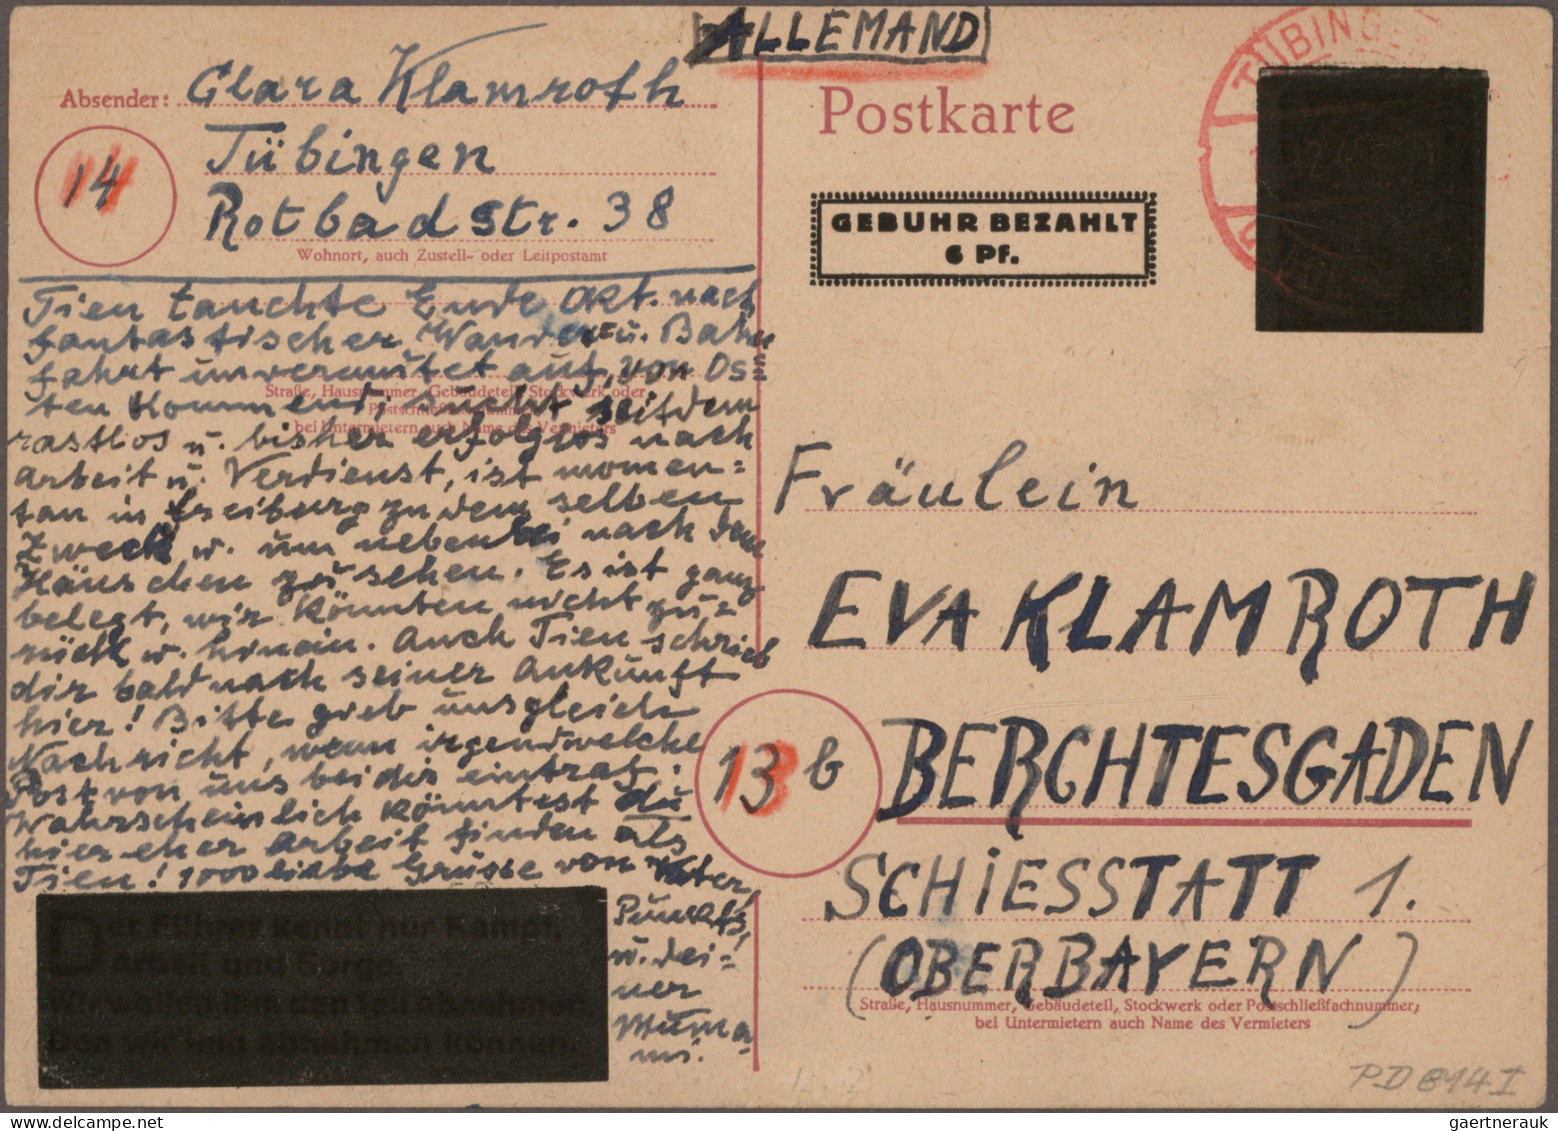 ALLEMAND
Absender: Clara Klamroth
14
Tübingen
Rotbadstr. 38
Wohnort, auch Zustell- oder Leitpostamt
Tien tauchte Ende Okt. nach
fantastischer Wander= u. Bahn
fahrt unvermutet auf, von Os=
ten kommend; sucht seitdem
rastlos u. bisher erfolglos nach
arbeit u. Verdienst, ist momen=
tan in Freiburg zu dem selben
Zweck u. um nebenbei nach dem
Häuschen zu sehen. Es ist ganz
belegt, wir könnten nicht zu=
rück u. hinein. Auch Tien schrieb
dir bald nach seiner Ankunft
hier! Bitte gieb uns gleich
Nachricht, wenn irgendwelche
Post von uns bei dir eintraf.
Wahrscheinlich könntest du
hier eher arbeit finden als
Tien! 1000 liebe Grüsse von Vater,
u. dei=
ner
Straße, Hausnummer, Gebäudeteil, Stockwerk oder
Postschließfachnummer,
bei Untermietern auch Name des Vermieters
Der Führer kennt nur Kampf,
Arbeit und Sorge.
Wir wollen ihm den Teil abnehmen,
Den wir ihm abnehmen können.
Postkarte
GEBÜHR BEZAHLT
6 Pf.
TÜBINGEN
Fräulein
EVA KLAMROTH
13 b
BERCHTESGADEN
SCHIESSTATT 1.
(OBERBAYERN)
Straße, Hausnummer, Gebäudeteil, Stockwerk oder Postschließfachnummer,
bei Untermietern auch Name des Vermieters
PD 814 I
gaertnerauk